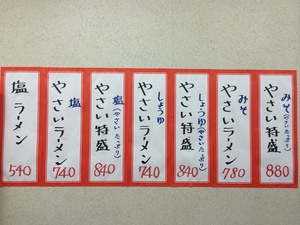 みそ
やさい特盛
(やさいたっぷり)
880
みそ
やさいラーメン
780
しょうゆ
やさい特盛
(やさいたっぷり)
840
しょうゆ
やさいラーメン
740
塩
やさい特盛
(やさいたっぷり)
840
塩
やさいラーメン
740
塩 ラーメン
540